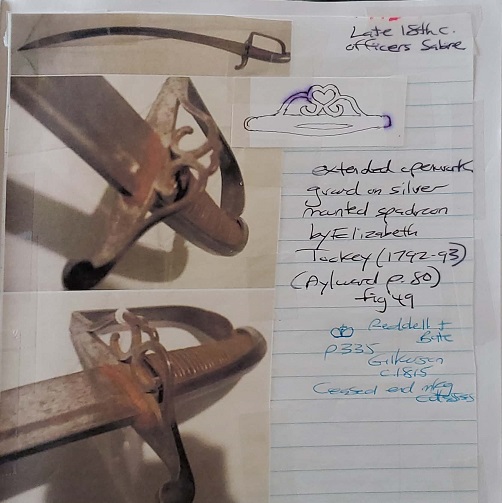 Late 18th c.
officers Sabre
extended openwork
guard on silver
mounted spadroon
by Elizabeth
Tookey (1792-93)
(Aylward p.80)
fig 49
Reddell +
Bate
p335
Gilkerson
c.1815
Ceased end mfg